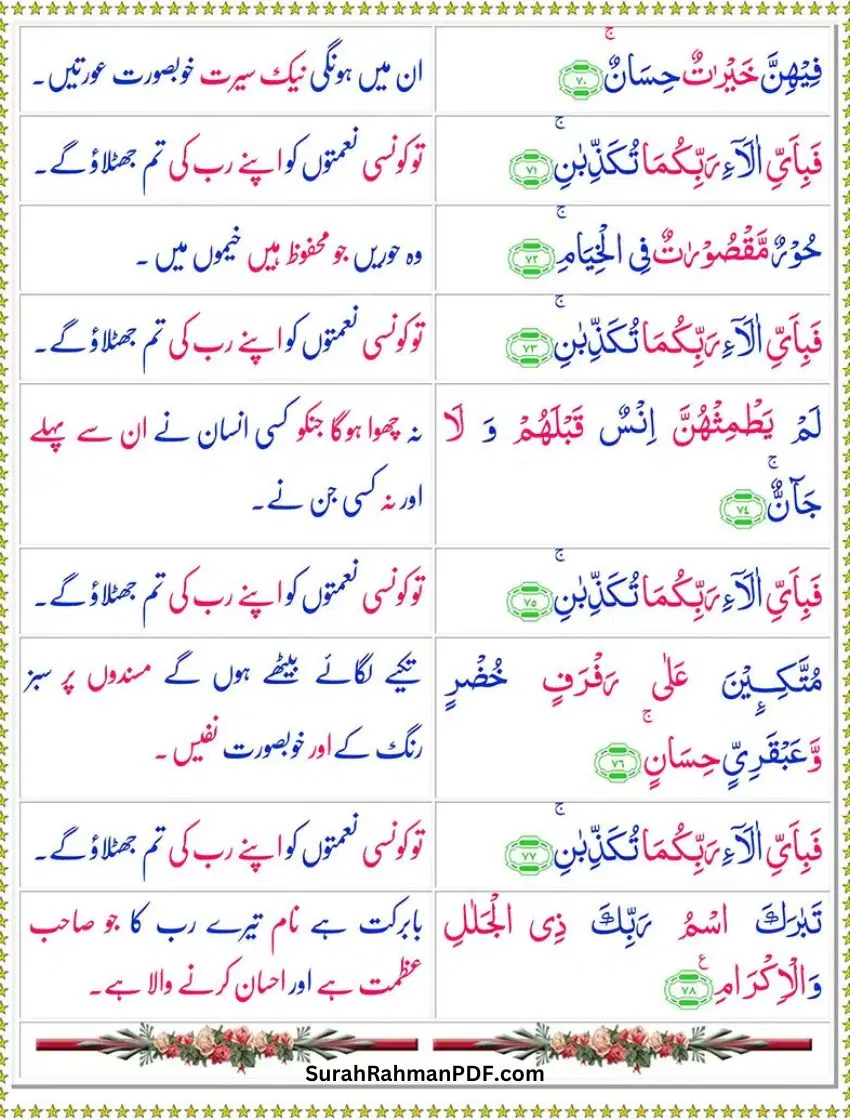 فِيْهِنَّ خَيْرٰتٌ حِسَانٌ ۚ ﴿۷۰﴾
ان میں ہونگی نیک سیرت خوبصورت عورتیں۔
فَبِاَيِّ اٰلَآءِ رَبِّكُمَا تُكَذِّبٰنِ ۚ ﴿۷۱﴾
تو کونسی نعمتوں کو اپنے رب کی تم جھٹلاؤ گے۔
حُوْرٌ مَّقْصُوْرٰتٌ فِي الْخِيَامِ ۚ ﴿۷۲﴾
وہ حوریں جو محفوظ ہیں خیموں میں ۔
فَبِاَيِّ اٰلَآءِ رَبِّكُمَا تُكَذِّبٰنِ ۚ ﴿۷۳﴾
تو کونسی نعمتوں کو اپنے رب کی تم جھٹلاؤ گے۔
لَمْ يَطْمِثْهُنَّ اِنْسٌ قَبْلَهُمْ وَ لَا
جَآنٌّ ۚ ﴿۷۴﴾
نہ چھوا ہوگا جنکو کسی انسان نے ان سے پہلے
اور نہ کسی جن نے۔
فَبِاَيِّ اٰلَآءِ رَبِّكُمَا تُكَذِّبٰنِ ۚ ﴿۷۵﴾
تو کونسی نعمتوں کو اپنے رب کی تم جھٹلاؤ گے۔
مُتَّكِـِٕيْنَ عَلٰى رَفْرَفٍ خُضْرٍ
وَّعَبْقَرِيٍّ حِسَانٍ ۚ ﴿۷۶﴾
تکیے لگائے بیٹھے ہوں گے مسندوں پر سبز
رنگ کے اور خوبصورت نفیس ۔
فَبِاَيِّ اٰلَآءِ رَبِّكُمَا تُكَذِّبٰنِ ۚ ﴿۷۷﴾
تو کونسی نعمتوں کو اپنے رب کی تم جھٹلاؤ گے۔
تَبٰرَكَ اسْمُ رَبِّكَ ذِى الْجَلٰلِ
وَالْاِكْرَامِ ۧ ﴿۷۸﴾
بابرکت ہے نام تیرے رب کا جو صاحب
عظمت ہے اور احسان کرنے والا ہے۔
SurahRahmanPDF.com